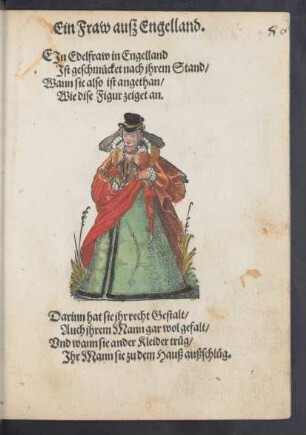 Ein Fraw auß Engelland.
80
EIn Edelfraw in Engelland
Ist geschmücket nach jhrem Stand/
Wann sie also ist angethan/
Wie dise Figur zeiget an.
Darinn hat sie jhr recht Gestalt/
Auch jhrem Mann gar wol gefalt/
Vnd wann sie ander Kleider trüg/
Jhr Mann sie zu dem Hauß außschlüg.